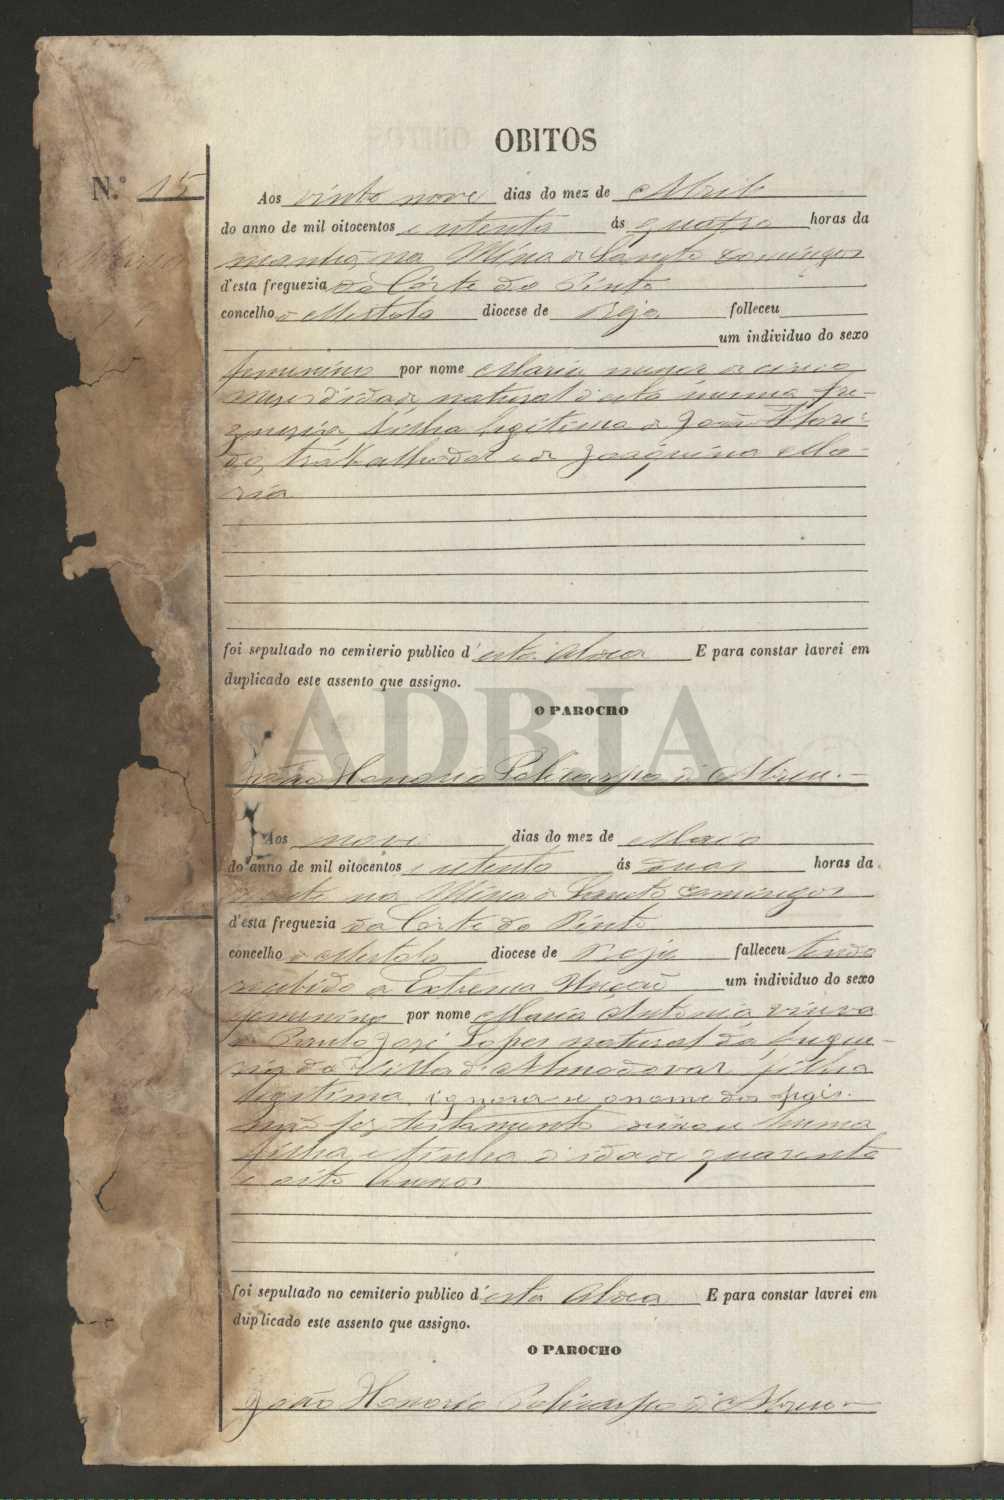 OBITOS
N.º 15
Aos vinte nove dias do mez de Abril
do anno de mil oitocentos e oitenta ás quatro horas da
manhã, na Mina de Sancto Domingos
d'esta freguezia da Côrte do Pinto
concelho de Mertola diocese de Beja falleceu
um individuo do sexo
femenino por nome Maria menor de cinco
meses d'idade natural d'esta mesma fre-
guezia filha legitima de João
trabalhador e de Joaquina Ma-
ria
foi sepultado no cemiterio publico d'esta Aldea E para constar lavrei em
duplicado este assento que assigno.
O PAROCHO
João Honorio Policarpo d'Abreu
ADBJA
Aos nove dias do mez de Maio
do anno de mil oitocentos e oitenta ás duas horas da
noute na Mina de Sancto Domingos
d'esta freguezia da Corte do Pinto
concelho de Mertola diocese de Beja falleceu tendo
recebido a Extrema Unção um individuo do sexo
femenino por nome Maria Antonia viuva
de Bento José Lopes natural da fregue-
zia da Villa d'Almodovar filha
legitima, ignora-se o nome dos pais.
não fez testamento deixou huma
filha e tinha d'idade quarenta
e oito annos
foi sepultado no cemiterio publico d'esta Aldea E para constar lavrei em
duplicado este assento que assigno.
O PAROCHO
João Honorio Policarpo d'Abreu